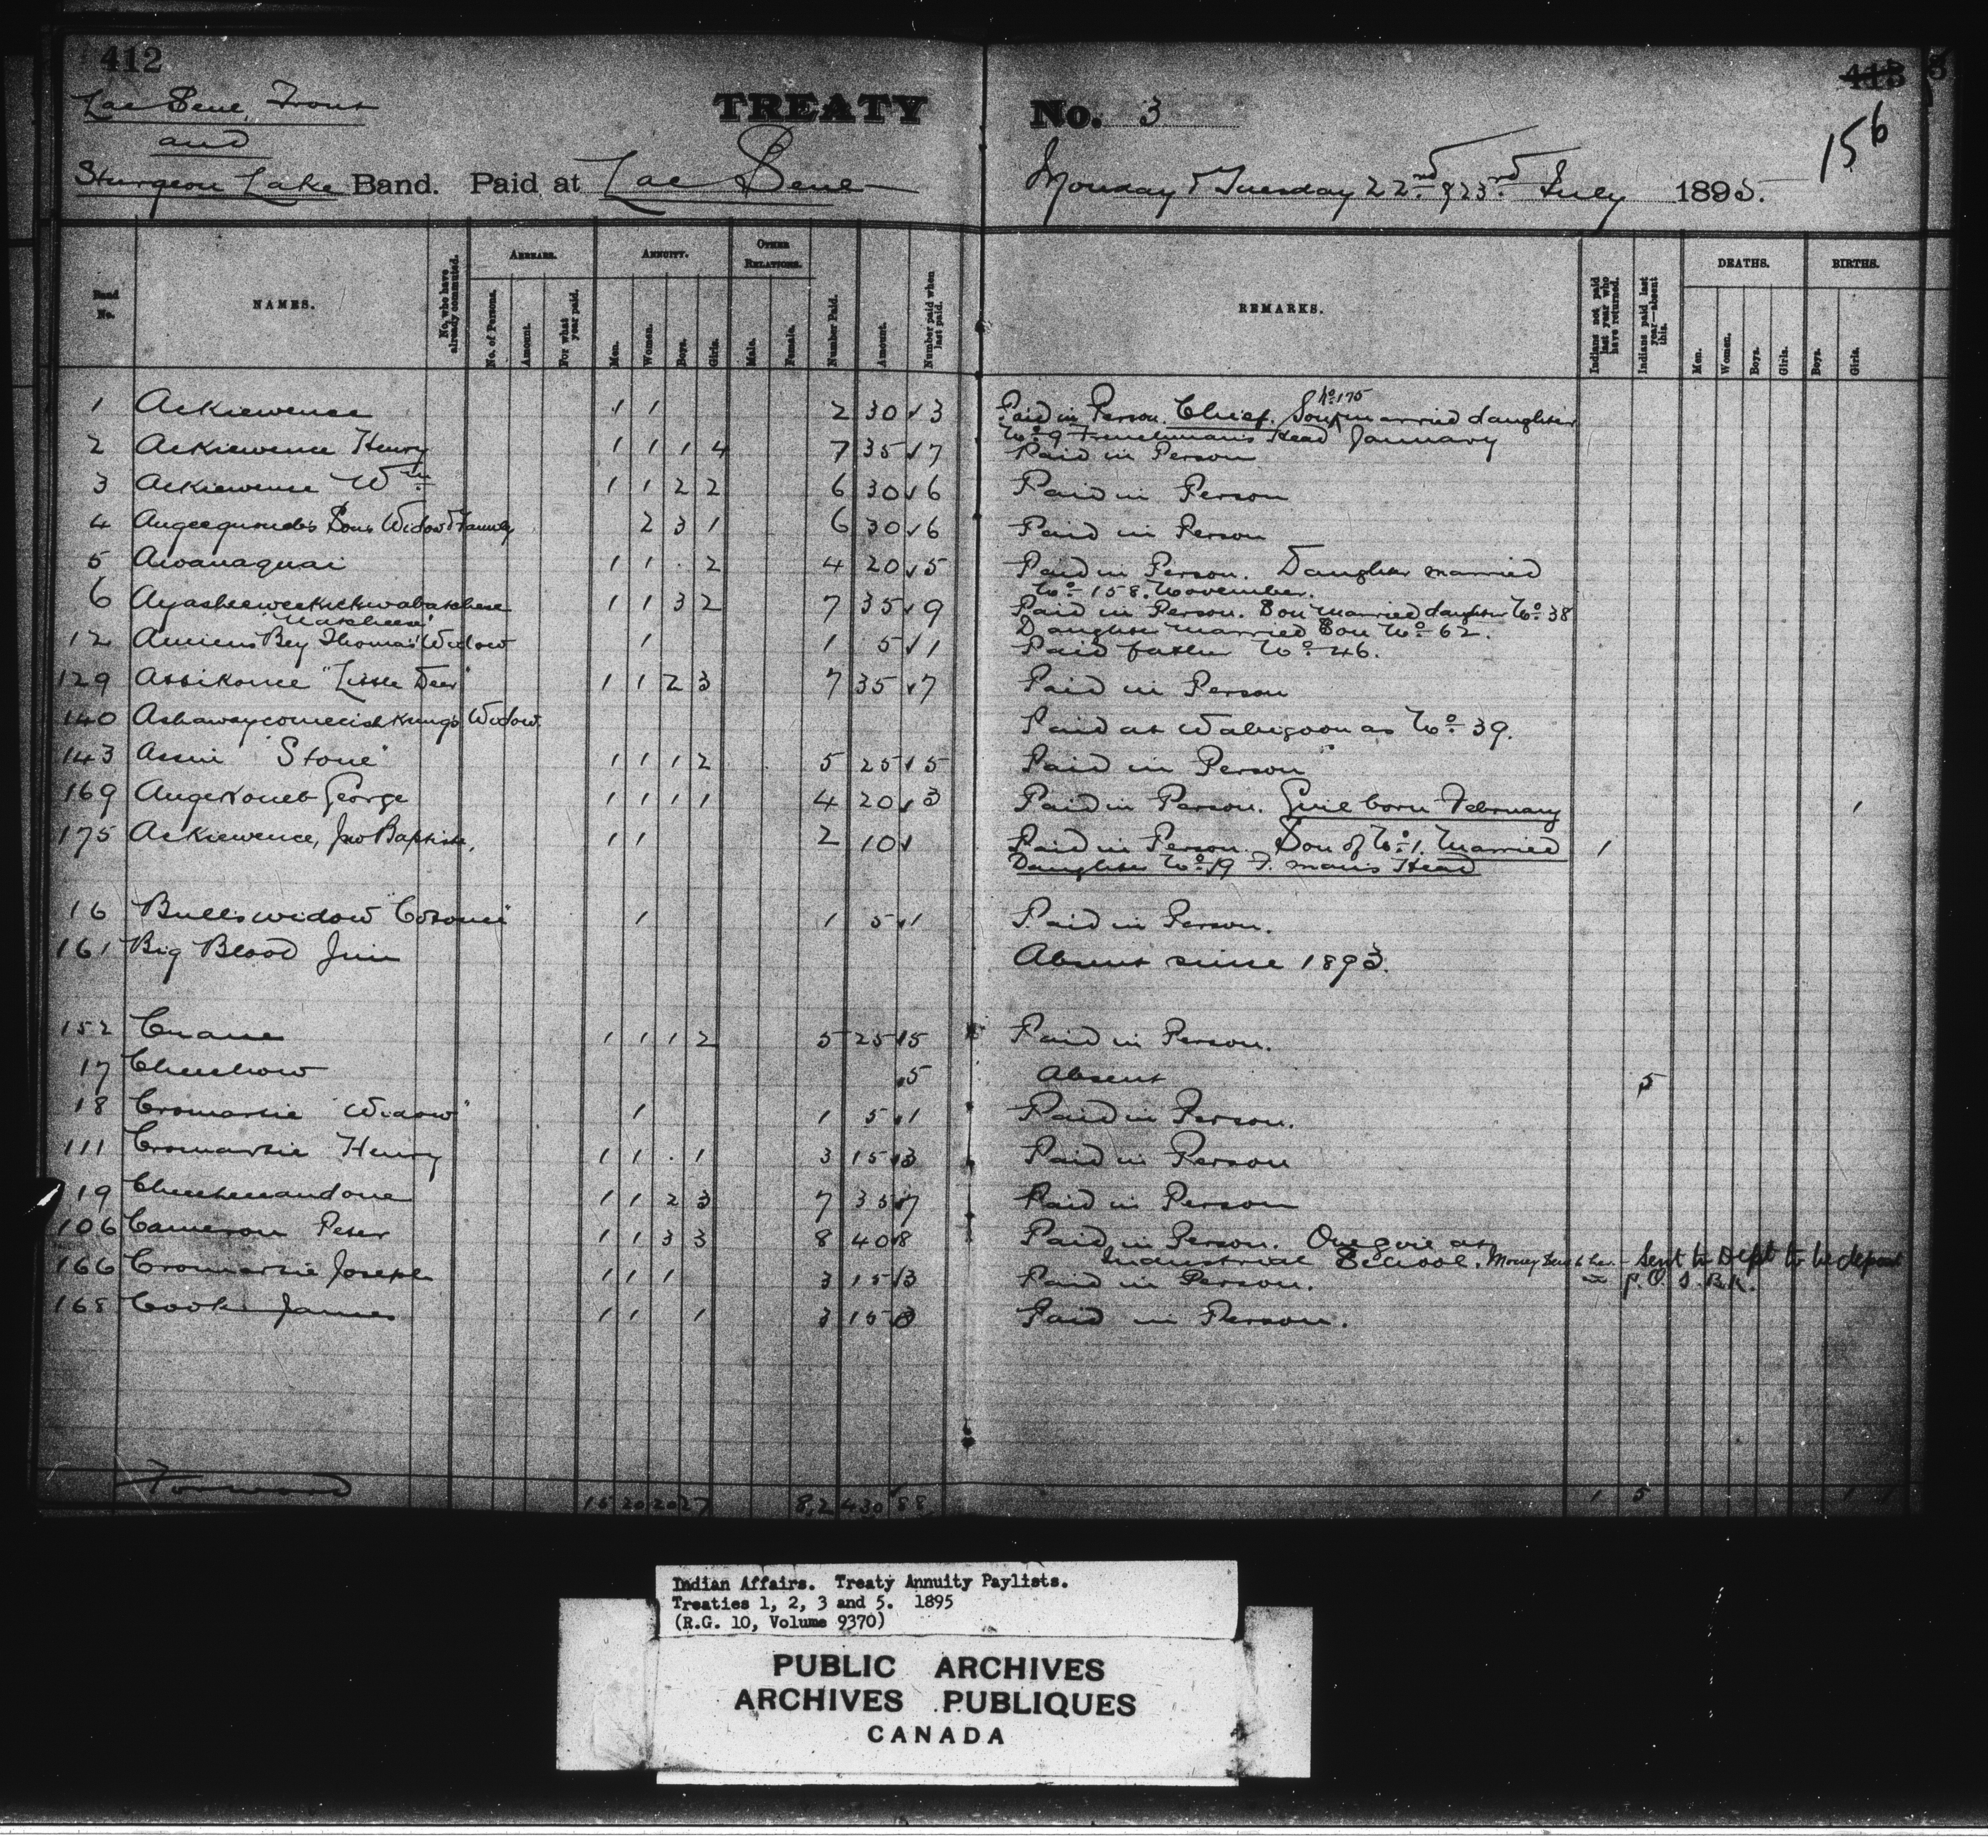 412
413 3
156
Lac Seul, Trout
and
Sturgeon Lake Band. Paid at Lac Seul
TREATY No. 3
Monday & Tuesday 22nd & 23rd July 1895.
Band No.
NAMES.
No. who have already commuted.
ARREARS.
No. of Persons.
Amount.
For what year paid.
ANNUITY.
Men.
Women.
Boys.
Girls.
OTHER RELATIONS.
Male.
Female.
Number Paid.
Amount.
Number paid when last paid.
REMARKS.
Indians not paid last year who have returned.
Indians paid last year—absent this.
DEATHS.
Men.
Women.
Boys.
Girls.
BIRTHS.
Boys.
Girls.
1 Ackiewence 1 1 2 30 3 Paid in Person. Chief. Son No 175 married daughter
No 9 Frenchman's Head January
2 Ackiewence Henry 1 1 1 4 7 35 7 Paid in Person
3 Ackiewence Wm 1 1 2 2 6 30 6 Paid in Person
4 Sons Widow & Family 2 3 1 6 30 6 Paid in Person
5 Awanaquai 1 1 . 2 4 20 5 Paid in Person. Daughter married
No 158. November.
6 1 1 3 2 7 35 9 Paid in Person. Son married daughter No 38
Daughter married Son No 62.
12 Thomas' Widow 1 1 5 1 Paid father No 46.
129 Assikonce "Little Deer" 1 1 2 3 7 35 7 Paid in Person
140 Widow. Paid at Wabigoon as No 39.
143 Assin "Stone" 1 1 1 2 5 25 5 Paid in Person
169 Angekoneb George 1 1 1 1 4 20 3 Paid in Person. Girl born February 1
175 Ackiewence, Jno Baptiste, 1 1 2 10 Paid in Person. Son of No 1. Married 1
Daughter No 19 F. mans Head
16 Bulls widow 1 1 5 1 Paid in Person.
161 Big Blood Jim Absent since 1893.
152 Crane 1 1 1 2 5 25 5 Paid in Person.
17 Cheechow 5 Absent 5
18 Cromartie "Widow" 1 1 5 1 Paid in Person.
111 Cromartie Henry 1 1 . 1 3 15 3 Paid in Person
19 1 1 2 3 7 35 7 Paid in Person
106 Cameron Peter 1 1 3 3 8 40 8 Paid in Person. One girl at
Industrial School. Money Sent to Dept to be deposit
P. O. S. Bk.
166 Cromartie Joseph 1 1 1 3 15 3 Paid in Person.
168 Cook James 1 1 1 3 15 3 Paid in Person.
Forward 15 20 20 27 82 430 88 1 5 1
Indian Affairs. Treaty Annuity Paylists.
Treaties 1, 2, 3 and 5. 1895
(R.G. 10, Volume 9370)
PUBLIC ARCHIVES
ARCHIVES PUBLIQUES
CANADA